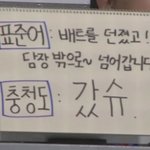 표준어: 배트를 던졌고!
담장 밖으로~ 넘어갑니다
충청도: 갔슈